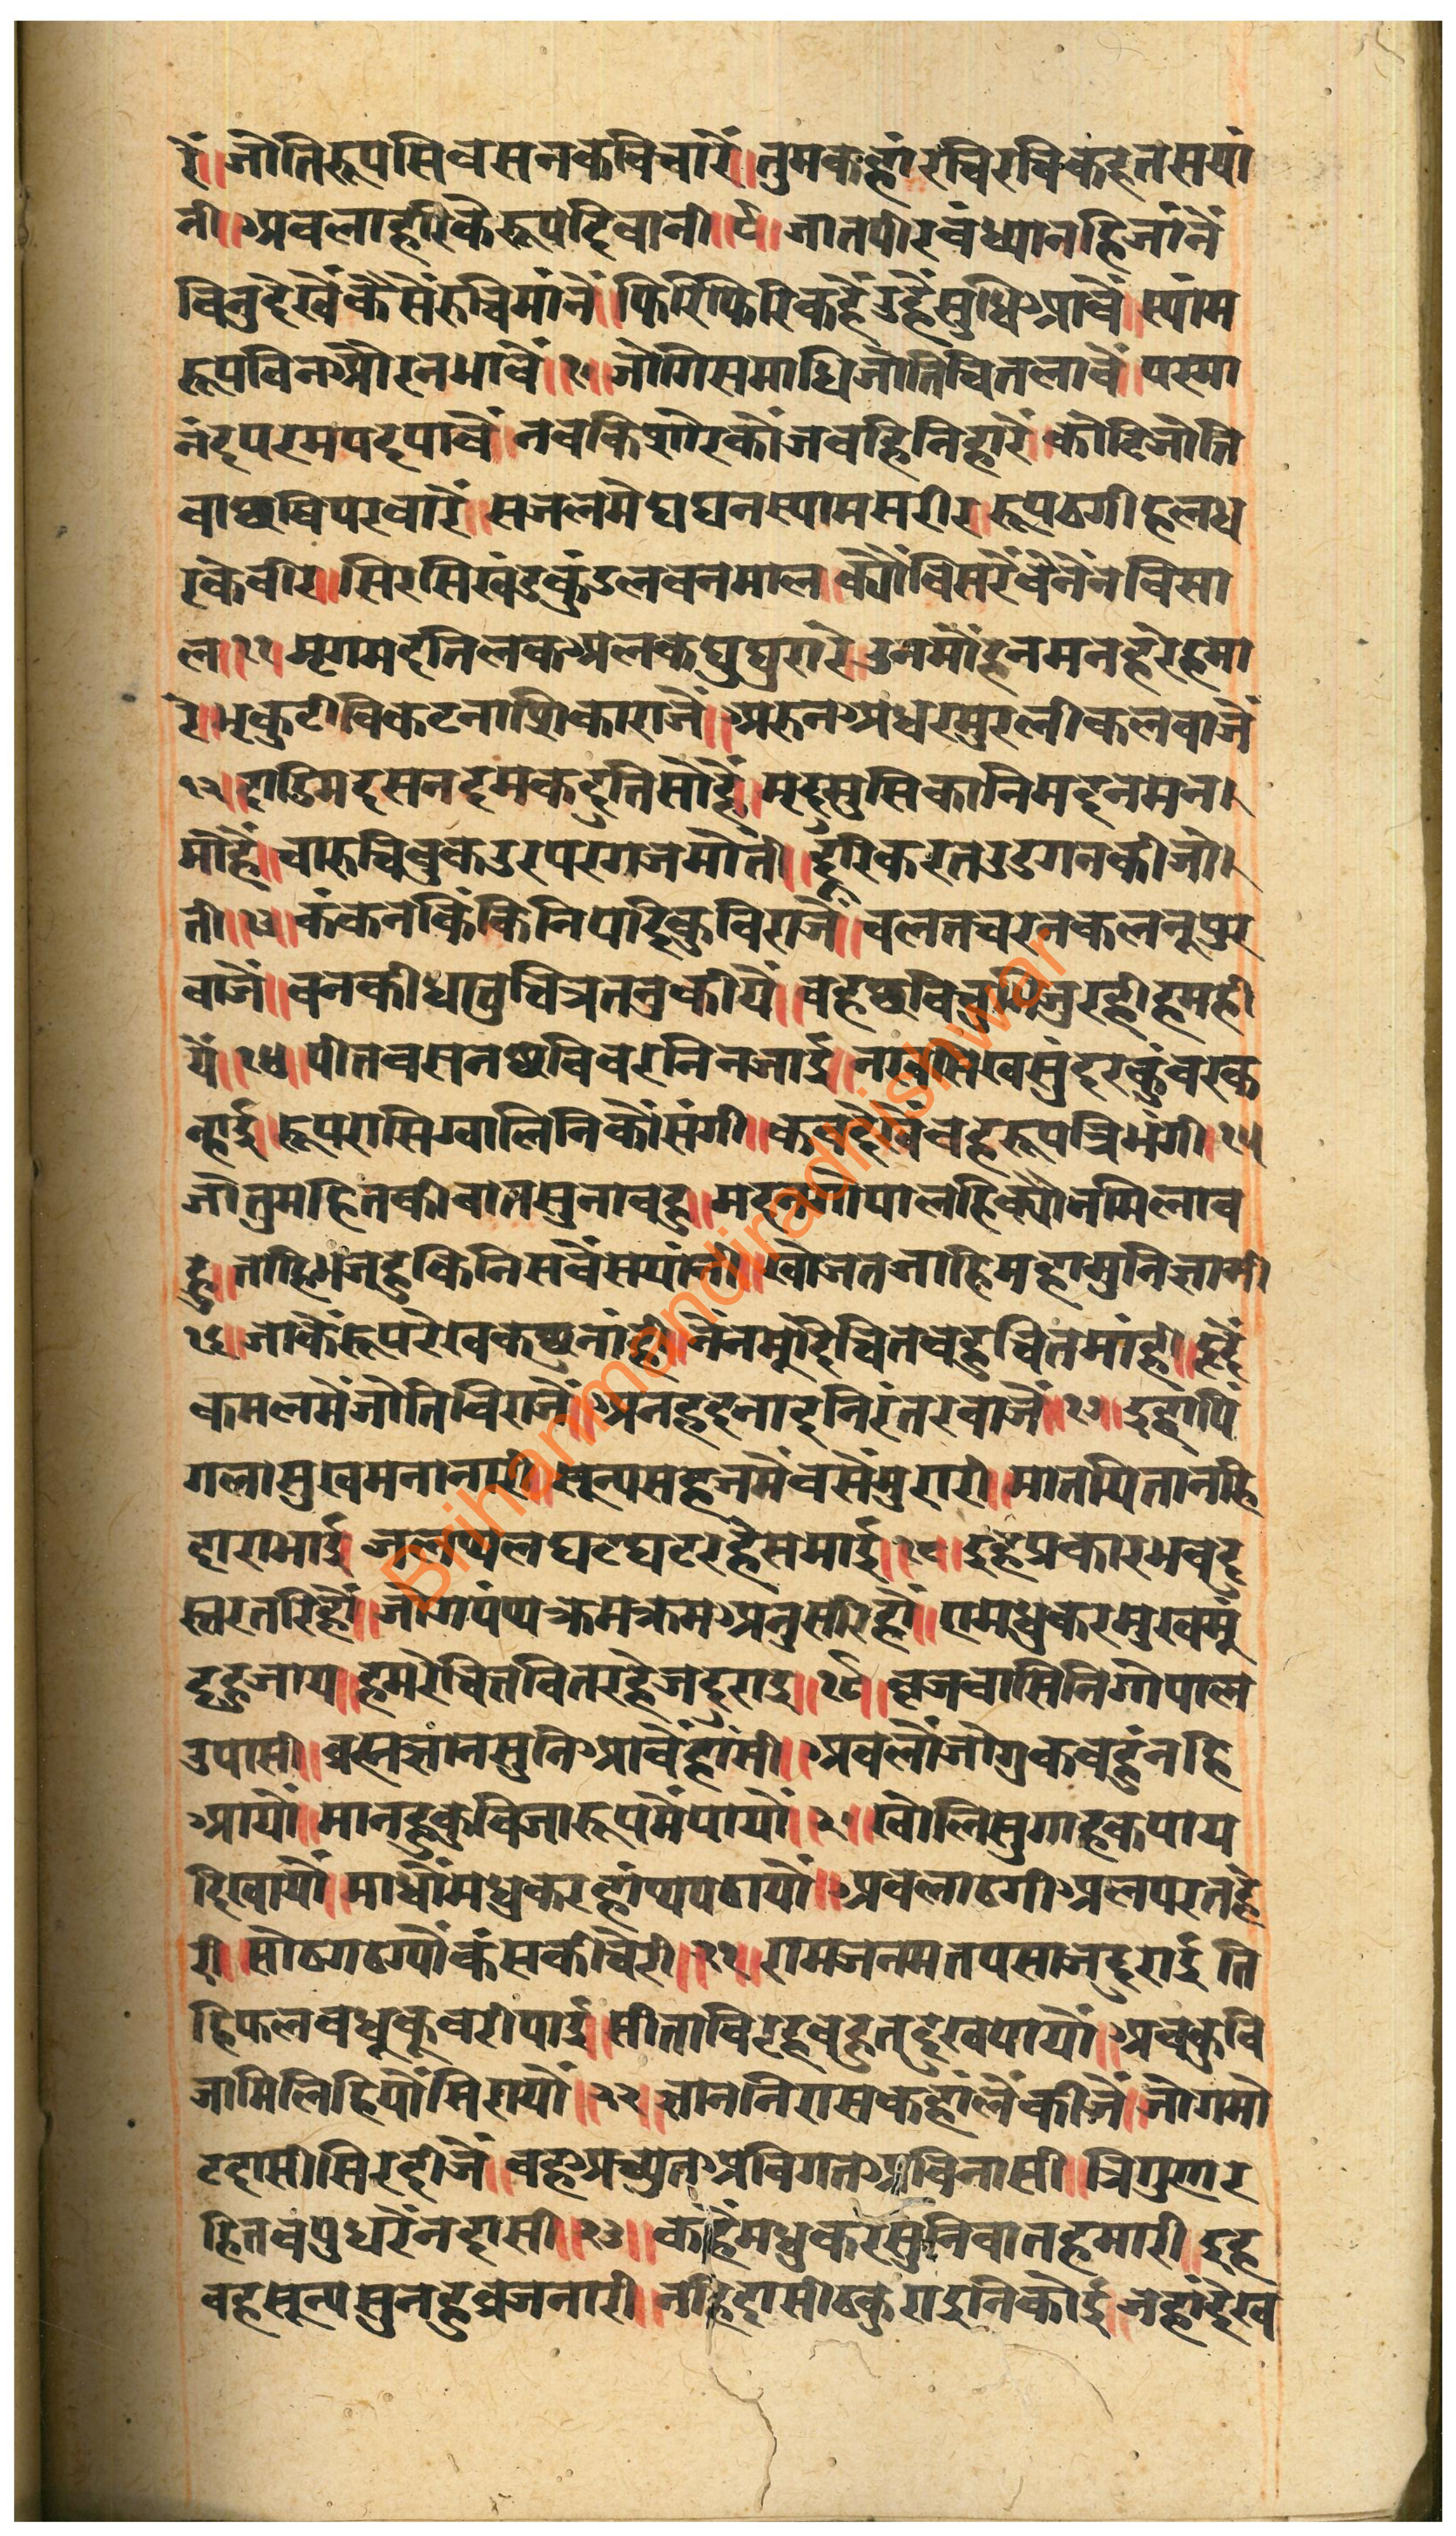 रें॥ जोतिरूपसिवसनकविचारें॥ तुमकहांरचिरचिकहतसयां
नी॥ अवलाहरिकैरूपदिवानी॥ ९॥ जातपीरवंध्यानहिजांनें
विनुदेखैंकैसेंरुचिमांनें॥ फिरिफिरिकहैंउहैंसुधिआवैं॥ स्यांम
रूपविनऔरनभावैं॥ १०॥ जोगिसमाधिजोतिचितलावैं॥ परमा
नंदपरमपदपावैं॥ नवकिशोरकौंजवहिनिहारें॥ कोटिजोति
वाछविपरवारें॥ सजलमेघघनस्यामसरीर॥ रूपठगीहलध
रकेवीर॥ सिरसिखंडकुंडलवनमाल॥ क्यौंविसरैंवैनैंनविसा
ल॥ ११॥ मृगमदतिलकअलकघुघुरारे॥ उनमोंहनमनहरेहमा
रे॥ भृकुटीविकटनाशिकाराजैं॥ अरुनअधरमुरलीकलवाजैं
१२॥ दाडिमदसनदमकदुतिसोहैं॥ मृदुमुसिकानिमदनमन
मोहैं॥ चारुचिबुकउरपरगजमोती॥ दूरिकरतउडगनकीजो
ती॥ १३॥ कंकनकिंकिनिपदिकुविराजैं॥ चलतचरनकलनूपुर
वाजैं॥ वनकीधातुचित्रतनुकीयें॥ वहछविचुभिजुरहीहमही
यें॥ १४॥ पीतवसनछविवरनिनजाई॥ नखसिखसुंदरकुंवरक
न्हाई॥ रूपरासिग्वालिनिकौंसंगी॥ कवदेखैंवहरूपत्रिभंगी॥ १५॥
जोतुमहितकीवातसुनावहु॥ मदनगोपालहिक्यौंनमिलाव
हु॥ ताहिभजुहुकिनिसवैंसयांनी॥ खोजतजाहिमहामुनिज्ञानी
१६॥ जाकैंरूपरेखकछुनांही॥ नैंनमूंदिचितवहुचितमांही॥ हृदैं
कमलमेंजोतिविराजैं॥ अनहदनादनिरंतरवाजैं॥ १७॥ इडापिं
गलासुखमनानारी॥ सून्यसहजमैंवसेंमुरारी॥ मातपितानहि
दाराभाई॥ जलथलघटघटरहेसमाई॥ १८॥ इहिप्रकारभवदु
स्तरतरिहौं॥ जोगपंथक्रमक्रमअनुसरिहौं॥ रामधुकरमुखमूं
दहुजाय॥ हमरेचितवितरहेजदुराइ॥ १९॥ वृजवासिनिगोपाल
उपासी॥ ब्रह्मज्ञानसुनिआवैंहांसी॥ अवलौंजोगुकवहुंनहि
आयौं॥ मानहुकुविजारूपमेंपायौं॥ २०॥ खोलिसुगाहकपाय
दिखायौं॥ माधौंमधुकरहांथपठायौं॥ अवलाठगीअलपरतहे
री॥ सोठगठग्यौंकंसकीचेरी॥ २१॥ रामजनमतपसाजदुराई॥ ति
हिफलवधूकूवरीपाई॥ सीताविरहवहुतदुखपायौं॥ अवकुवि
जामिलिहियौंसिरायौं॥ २२॥ ज्ञाननिरासकहांलैंकीजैं॥ जोगमो
टदासीसिरदीजैं॥ वहअच्युतअविगतअविनासी॥ त्रिगुणर
हितवपुधरेंनदासी॥ २३॥ कहैंमधुकरसुनिवातहमारी॥ इह
वहसून्यसुनहुव्रजनारी॥ नहिदासीठकुराइनिकोई॥ जेहांदेख